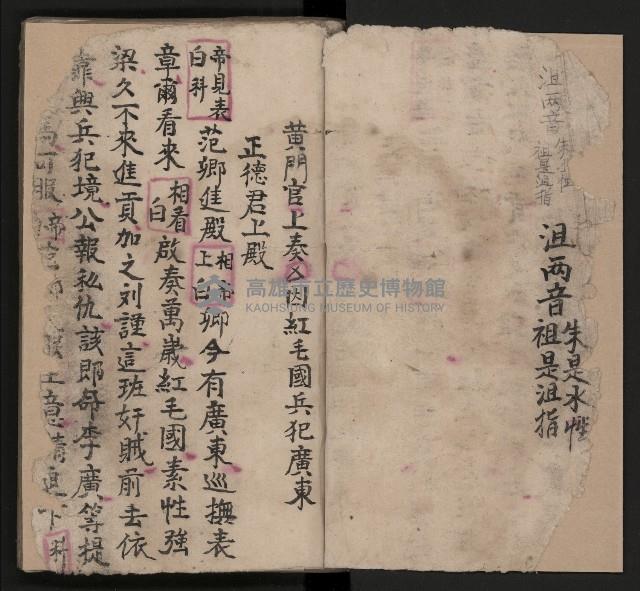 沮两音
祖是沮指
沮两音
朱是水性
祖是沮指
黄門官上奏又因紅毛國兵犯廣東
正德君上殿
帝見表
白科
范卿進殿
相上
帝白
卿今有廣東巡撫表
章爾看來
相看
白
啟奏萬歲紅毛國素性強
梁久不來進貢加之刘謹這班奸賊前去依
靠興兵犯境公報私仇該即命李廣等提
科
高雄市立歷史博物館
KAOHSIUNG MUSEUM OF HISTORY